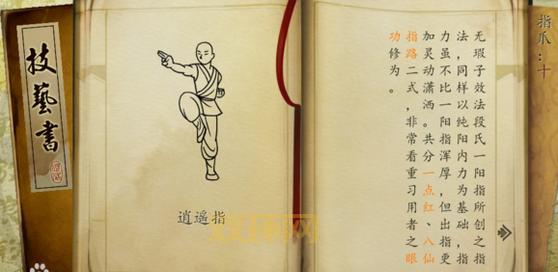 技藝書
逍遥指
指爪：十
无瑕子效法段氏一阳指所创之指
法，同样以纯阳内力为基础，指
力虽不比一阳指浑厚，但出指更
加灵动潇洒。共分一点红、八仙
指路二式，非常看重习用者之眼
功修为。